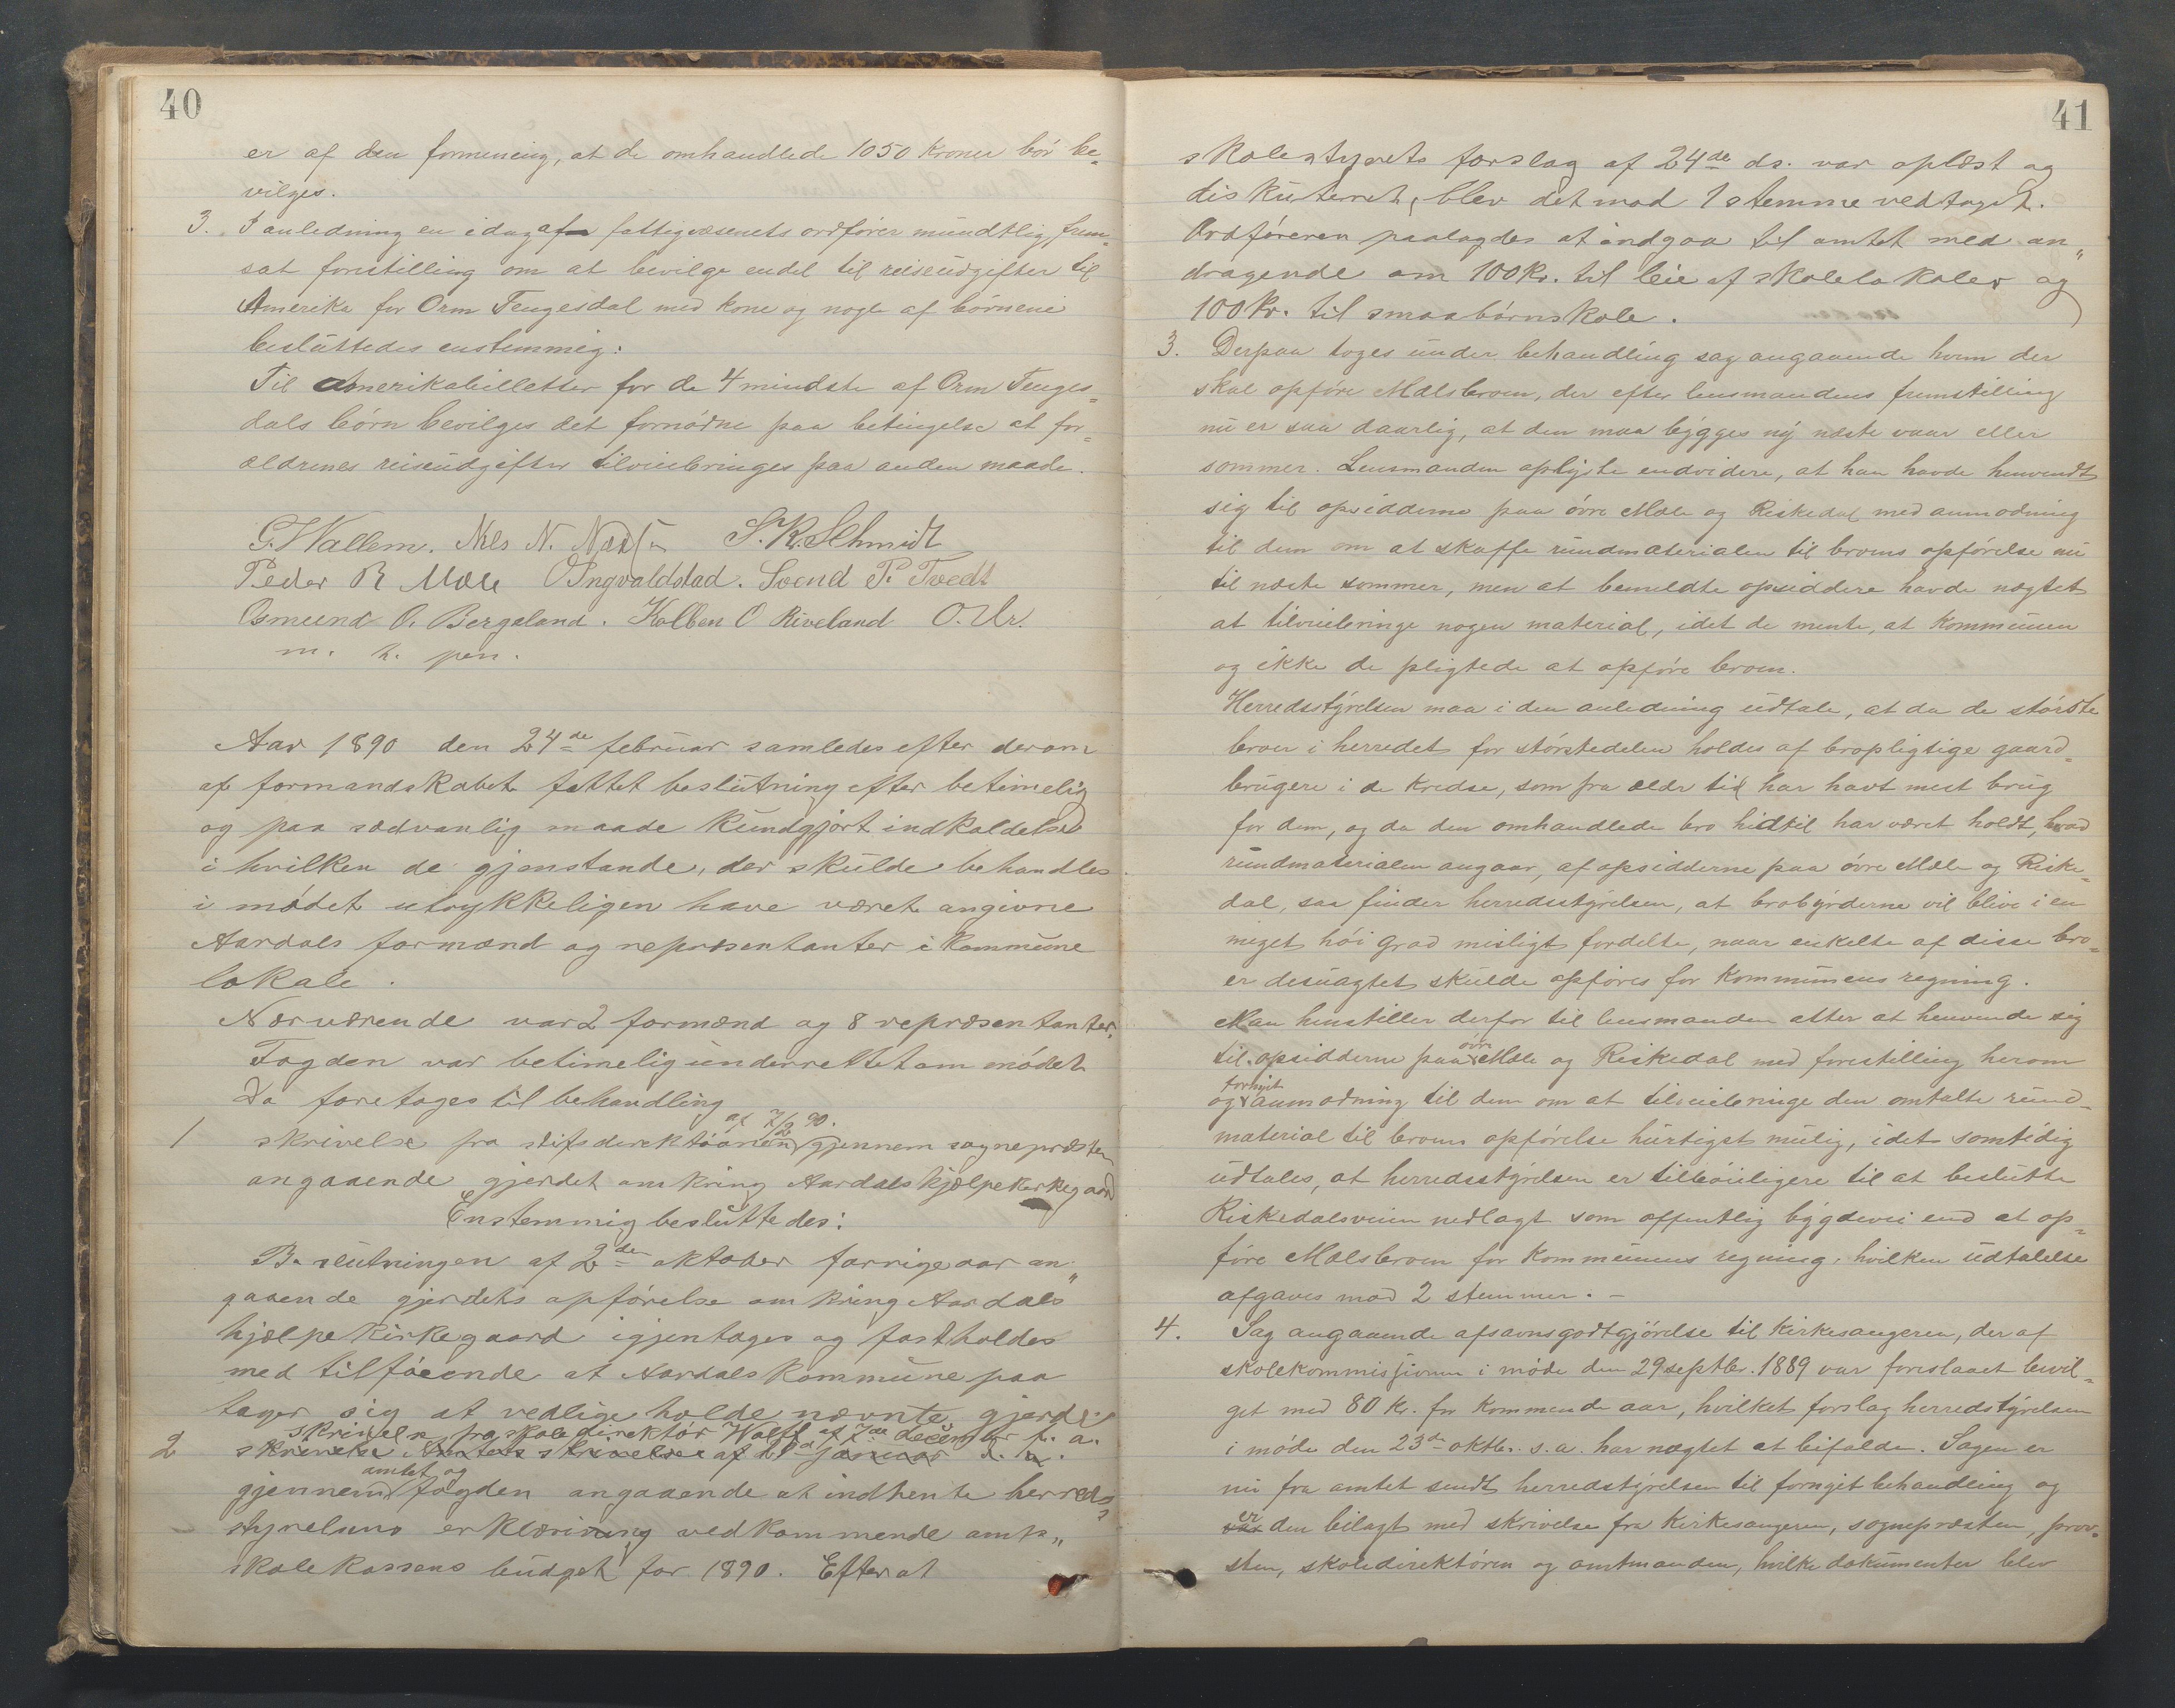 40
er af den formening, at de omhandlede 1050 kroner bör be=
vilges.
3. I anledning en idag af fattigvæsenets ordförer mundtlig frem=
sat forestilling om at bevilge endel til reiseudgifter til
Amerika for Orm Tengesdal med kone og nogle af börnene
besluttedes enstemmig:
Til Amerikabilletter for de 4 mindste af Orm Tenges=
dals börn bevilges det fornödne paa betingelse at for=
ældrenes reiseudgifter tilveiebringes paa anden maade.
G. Wallem. Nils N. S. K. Schmidt
Peder R Mæle O Ingvaldstad. Svend P. Tvedt
Osmund O. Bergeland. Kolben O Riveland O. Ur.
m. h. pen.
Aar 1890 den 24de februar samledes efter derom
af formandskabet fattet beslutning efter betimelig
og paa sædvanlig maade kundgjort indkaldelse
i hvilken de gjenstande, der skulde behandles
i mödet udtrykkeligen have været angivne
Aardals formænd og repræsentanter i kommune
lokale.
Nærværende var 2 formænd og 8 repræsentanter.
Fogden var betimelig underrettet om mödet
Da foretages til behandling
1 skrivelse fra stifsdirektionen af 7/2 90. gjennem sognepræsten
angaaende gjerdet omkring Aardals hjælpekirkegaard
Enstemmig besluttedes:
Beslutningen af 2den oktober forrige aar an„
gaaende gjerdets opförelse omkring Aardals
hjælpekirkegaard igjentages og fastholdes
med tilföiende at Aardals kommune paa
tager sig at vedlige holde nævnte gjerde.
skrivelse fra skoledirektör Wolff af 7de december f. a.
2 skrivelse Amtets skrivelse af 21de januar d. a.
gjennem amtet og fogden angaaende at indhente herreds=
styrelsens erklæring vedkommende amts„
skolekassens budget for 1890. Efter at
41
skolestyrets forslag af 24de ds. var oplæst og
diskuterret, blev det mod 1 stemme vedtaget.
Ordföreren paalagdes at indgaa til amtet med an„
dragende om 100 kr. til leie af skolelokaler og
100 kr. til smaabörnskole.
3. Derpaa toges under behandling sag angaaende hvem der
skal opföre Mælsbroen, der efter lensmandens fremstilling
nu er saa daarlig, at den maa bygges ny næste vaar eller
sommer. Lensmanden oplyste endvidere, at han havde henvendt
sig til opsidderne paa övre Mæle og Riskedal med anmodning
til dem om at skaffe rundmaterialen til broens opförelse nu
til næste sommer, men at bemeldte opsiddere havde nægtet
at tilveiebringe nogen material, idet de mente, at kommunen
og ikke de pligtede at opföre broen.
Herredsstyrelsen maa i den anledning udtale, at da de störste
broer i herredet for störstedelen holdes af bropligtige gaard=
brugere i de kredse, som fra ældr tid har havt mest brug
for dem, og da den omhandlede bro hidtil har været holdt, hvad
rundmaterialen angaar, af opsidderne paa övre Mæle og Riske=
dal, saa finder herredsstyrelsen, at brobyrderne vil blive i en
meget höi grad misligt fordelte, naar enkelte af disse bro=
er desuagtet skulde opföres for kommunens regning.
Man henstiller derfor til lensmanden atter at henvende sig
til opsidderne paa övre Mæle og Riskedal med forestilling herom
og fornyet anmodning til dem om at tilveiebringe den omtalte rund=
material til broens opförelse hurtigst mulig, idet samtidig
udtales, at herredsstyrelsen er tilböieligere til at beslutte
Riskedalsveien nedlagt som offentlig bygdevei end at op=
före Mælsbroen for kommunens regning, hvilken udtalelse
afgaves mod 2 stemmer. –
4. Sag angaaende afsavnsgodtgjörelse til kirkesangeren, der af
skolekommissjonen i möde den 29 septbr. 1889 var foreslaaet bevil=
get med 80 kr. for kommende aar, hvilket forslag herredstyrelsen
i möde den 23de oktbr. s. a. har nægtet at bifalde. Sagen er
nu fra amtet sendt herredstyrelsen til fornyet behandling og
var er den bilagt med skrivelse fra kirkesangeren, sognepræsten, prov=
sten, skoledirektören og amtmanden, hvilke dokumenter blev